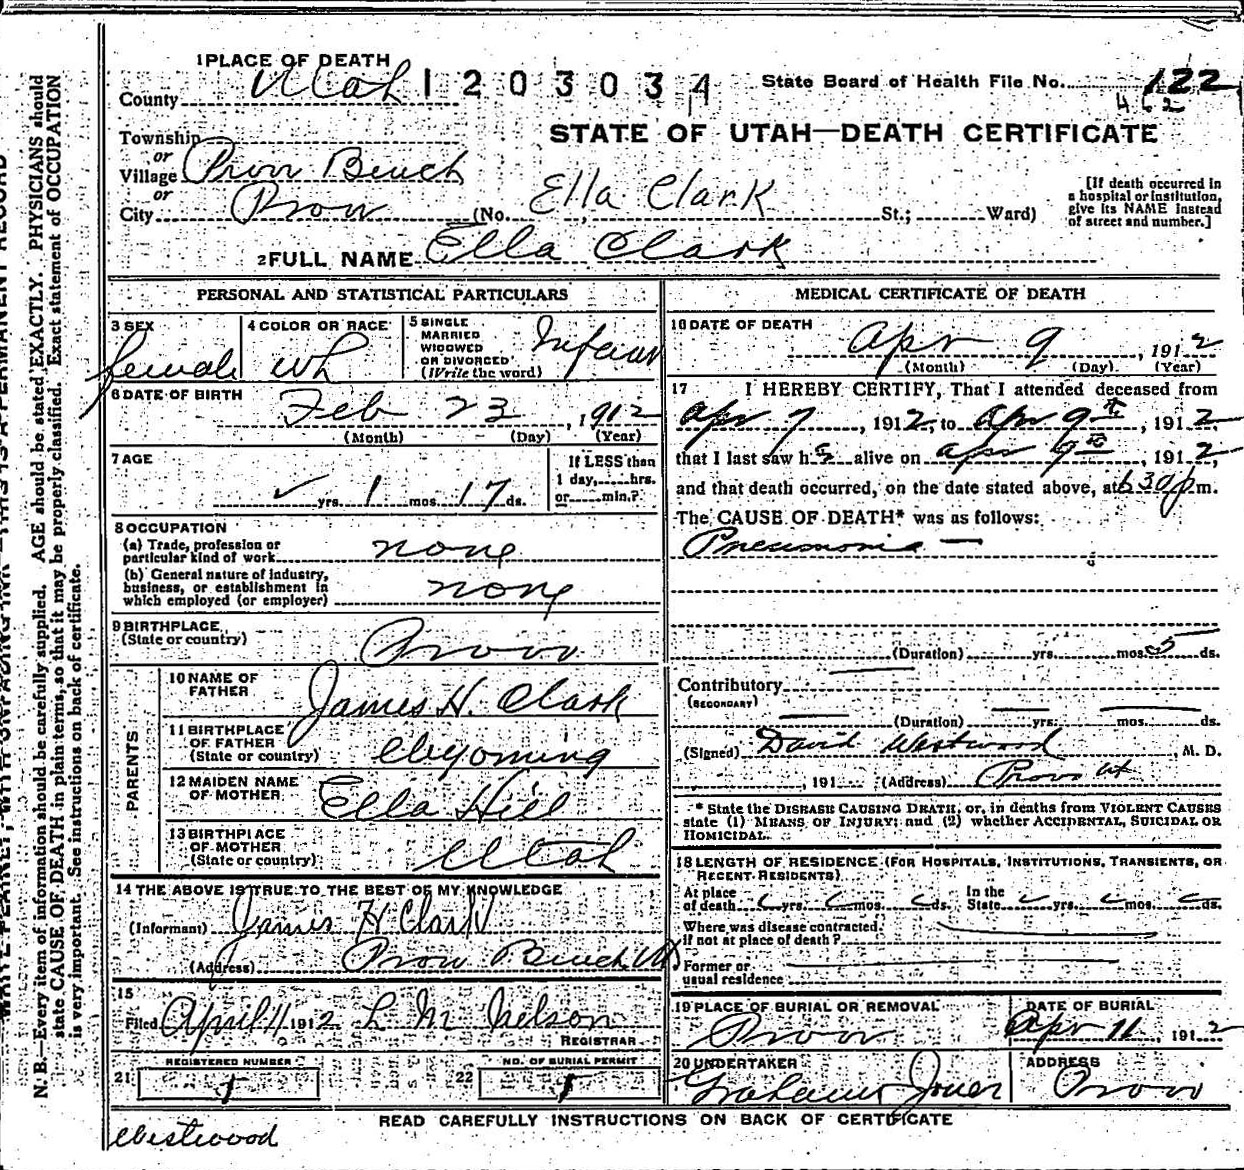 1 PLACE OF DEATH
County Utah 1203034 State Board of Health File No. 122
462
Township
or
Village Provo Bench
or
City Provo (No. Ella Clark St.; Ward)
STATE OF UTAH—DEATH CERTIFICATE
[If death occurred in
a hospital or institution,
give its NAME instead
of street and number.]
2 FULL NAME Ella Clark
PERSONAL AND STATISTICAL PARTICULARS
3 SEX
female
4 COLOR OR RACE
Wh
5 SINGLE
MARRIED
WIDOWED
OR DIVORCED
(Write the word)
Infant
6 DATE OF BIRTH
Feb 23, 1912
(Month) (Day) (Year)
7 AGE
yrs. 1 mos. 17 ds.
If LESS than
1 day, hrs.
or min.?
8 OCCUPATION
(a) Trade, profession or
particular kind of work none
(b) General nature of industry,
business, or establishment in
which employed (or employer) none
9 BIRTHPLACE
(State or country) Provo
PARENTS
10 NAME OF
FATHER James H. Clark
11 BIRTHPLACE
OF FATHER
(State or country) Wyoming
12 MAIDEN NAME
OF MOTHER Ella Hill
13 BIRTHPLACE
OF MOTHER
(State or country) Utah
14 THE ABOVE IS TRUE TO THE BEST OF MY KNOWLEDGE
(Informant) James H Clark
(Address) Provo Bench Ut
15
Filed April 11 1912 L M Nelson
REGISTRAR
REGISTERED NUMBER
21 1
NO. OF BURIAL PERMIT
22 1
MEDICAL CERTIFICATE OF DEATH
16 DATE OF DEATH
Apr 9, 1912
(Month) (Day) (Year)
17 I HEREBY CERTIFY, That I attended deceased from
Apr 7, 1912, to Apr 9th, 1912
that I last saw h alive on Apr 9th, 1912,
and that death occurred, on the date stated above, at 630 p m.
The CAUSE OF DEATH* was as follows:
Pneumonia —
(Duration) yrs. mos. 5 ds.
Contributory
(SECONDARY)
(Duration) yrs. mos. ds.
(Signed) David Westwood M. D.
, 191 (Address) Provo Ut
* State the DISEASE CAUSING DEATH, or, in deaths from VIOLENT CAUSES
state (1) MEANS OF INJURY; and (2) whether ACCIDENTAL, SUICIDAL OR
HOMICIDAL.
18 LENGTH OF RESIDENCE (FOR HOSPITALS, INSTITUTIONS, TRANSIENTS, OR
RECENT RESIDENTS)
At place In the
of death yrs. mos. ds. State yrs. mos. ds.
Where was disease contracted,
if not at place of death?
Former or
usual residence
19 PLACE OF BURIAL OR REMOVAL
Provo
DATE OF BURIAL
Apr 11, 1912
20 UNDERTAKER
Jones
ADDRESS
Provo
READ CAREFULLY INSTRUCTIONS ON BACK OF CERTIFICATE
Westwood
N. B.—Every item of information should be carefully supplied. AGE should be stated EXACTLY. PHYSICIANS should
state CAUSE OF DEATH in plain terms, so that it may be properly classified. Exact statement of OCCUPATION
is very important. See instructions on back of certificate.